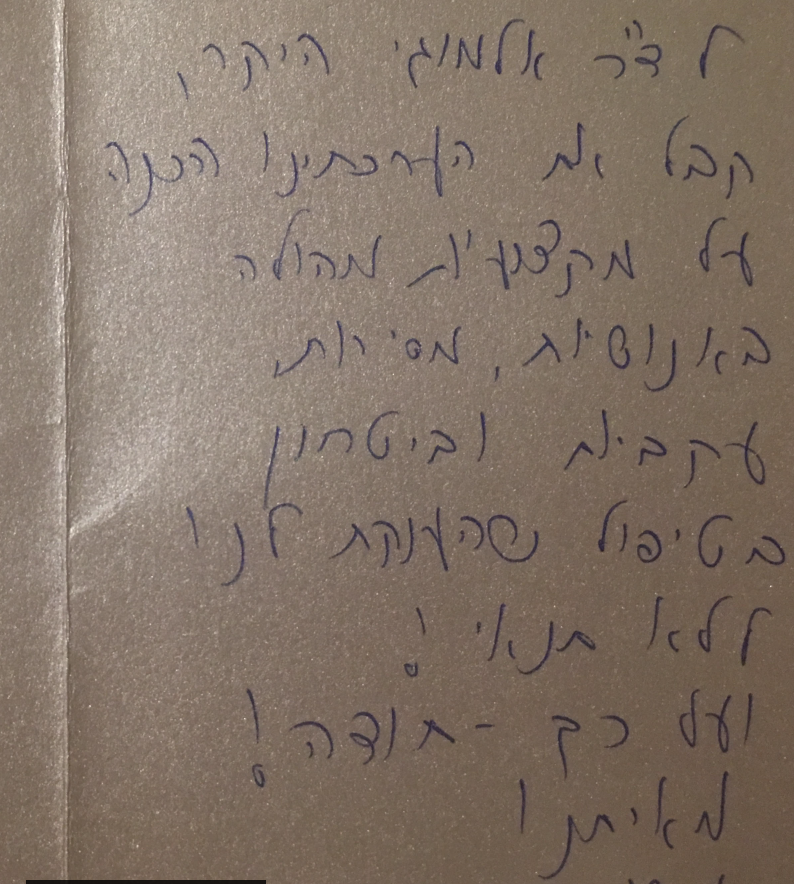 לד"ר אלמוגי היקר,
קבל את הערכתינו הכנה
על מקצועיות מהולה
באנושיות, מסירות,
עקביות וביטחון
בטיפול שהענקת לנו
ללא תנאי!
ועל כך - תודה!
מאיתנו